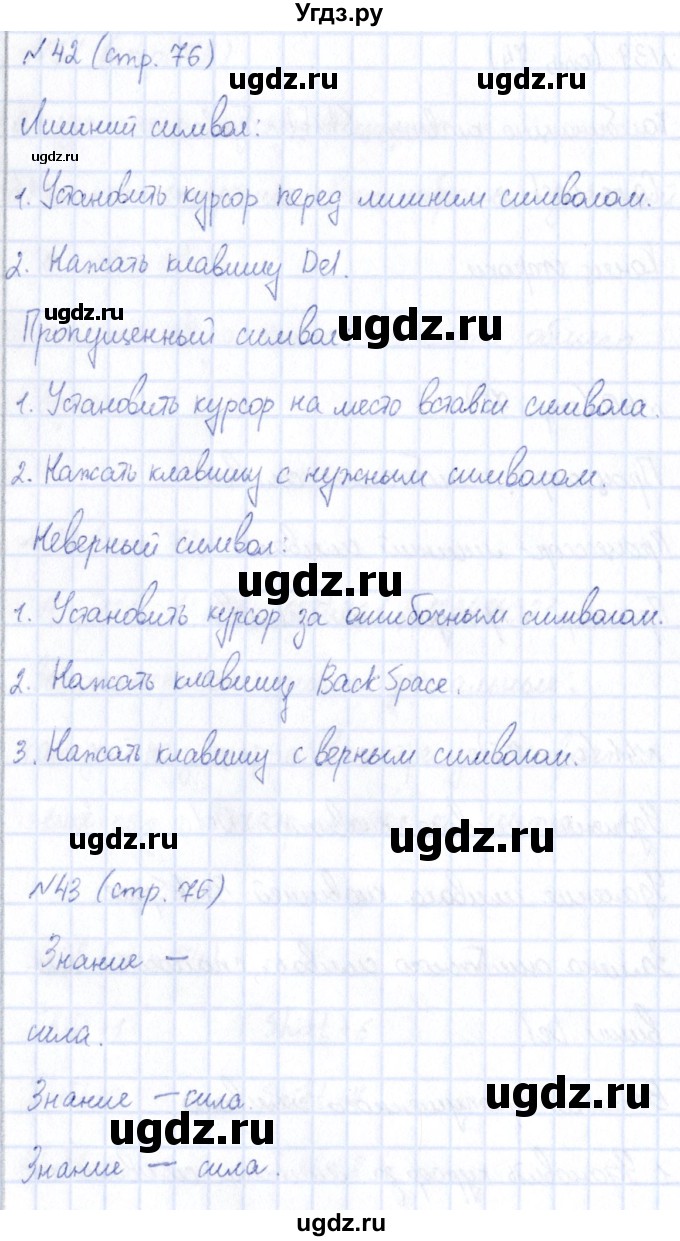 Угдз.ру
№42 (стр. 76)
ugdz.ru
Лишний символ:
ugdz.ru
1. Установить курсор перед лишним символом.
2. Нажать клавишу Del.
ugdz.ru
ugdz.ru
Пропущенный символ:
1. Установить курсор на место вставки символа.
2. Нажать клавишу с нужным символом.
Неверный символ:
ugdz.ru
1. Установить курсор за ошибочным символом.
2. Нажать клавишу BackSpace.
3. Нажать клавишу с верным символом.
ugdz.ru
ugdz.ru
№43 (стр. 76)
Знание —
сила.
ugdz.ru
Знание — сила.
ugdz.ru
Знание — сила.
ugdz.ru